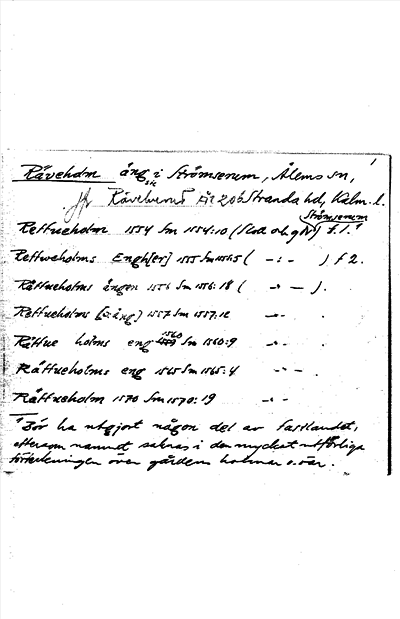 1
Räveholm äng i Strömserum, Ålems sn,
Jfr Rävelund Stranda hd, Kalm. l.
Strömserum
Reffueholm 1554 Sm 1554:10 (Slott o h g N) f. 1.¹
Reffweholms Engh[er] 1555 Sm 1555:5 ( - : - ) f 2.
Räffueholms ängen 1556 Sm 1556:18 ( - — ).
Reffueholms [:äng] 1557 Sm 1557:12 - -
Räffue holms eng 1560 Sm 1560:9 - - .
Råffueholms eng 1565 Sm 1565:4 - - .
Råffueholm 1570 Sm 1570:19 - -
¹ Bör ha utgjort någon del av fastlandet,
eftersom namnet saknas i den mycket utförliga
förteckningen över gårdens holmar o. öar.